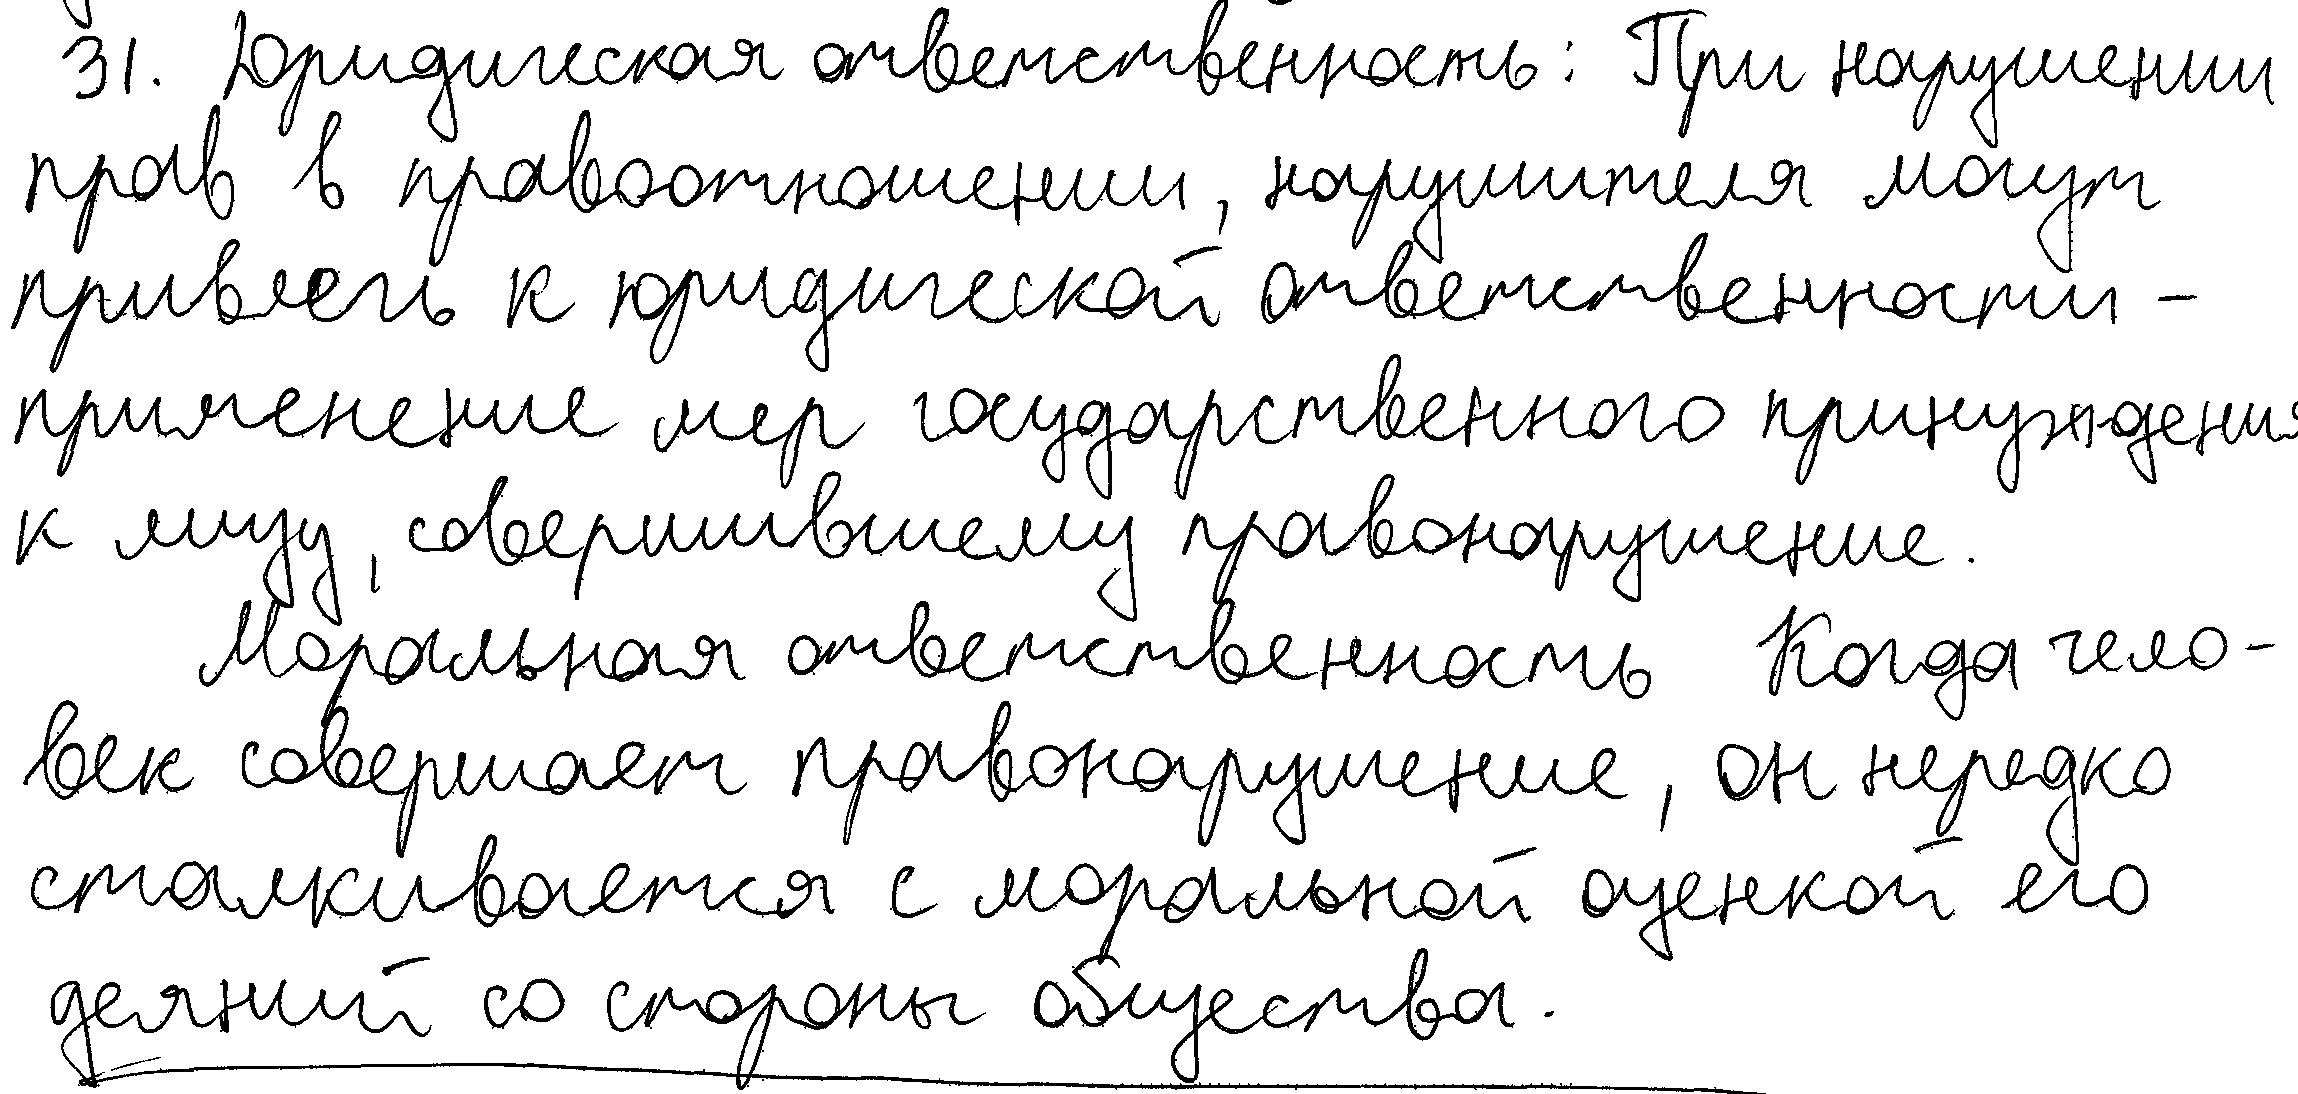 31. Юридическая ответственность: При нарушении
прав в правоотношении, нарушителя могут
привлечь к юридической ответственности -
применение мер государственного принуждения
к лицу, совершившему правонарушение.
Моральная ответственность Когда чело-
век совершает правонарушение, он нередко
сталкивается с моральной оценкой его
деяний со стороны общества.